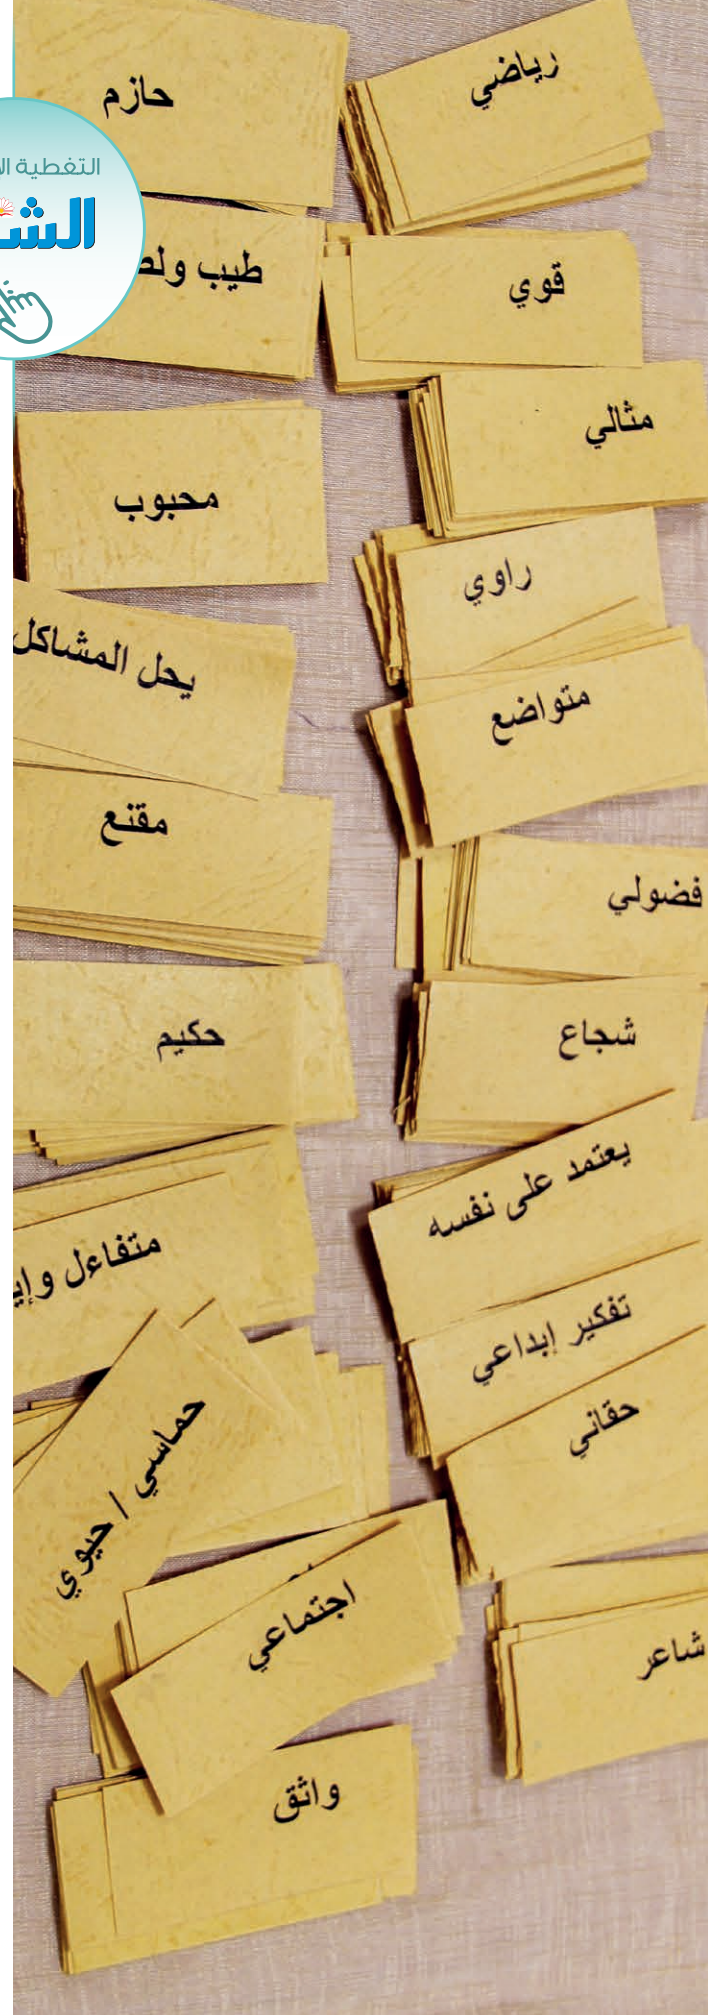 رياضي
حازم
التغطية
طيب
قوي
مثالي
محبوب
راوي
يحل المشاكل
متواضع
مقنع
فضولي
حكيم
شجاع
يعتمد على نفسه
متفاءل
تفكير إبداعي
حقاني
حماسي / حيوي
اجتماعي
شاعر
واثق